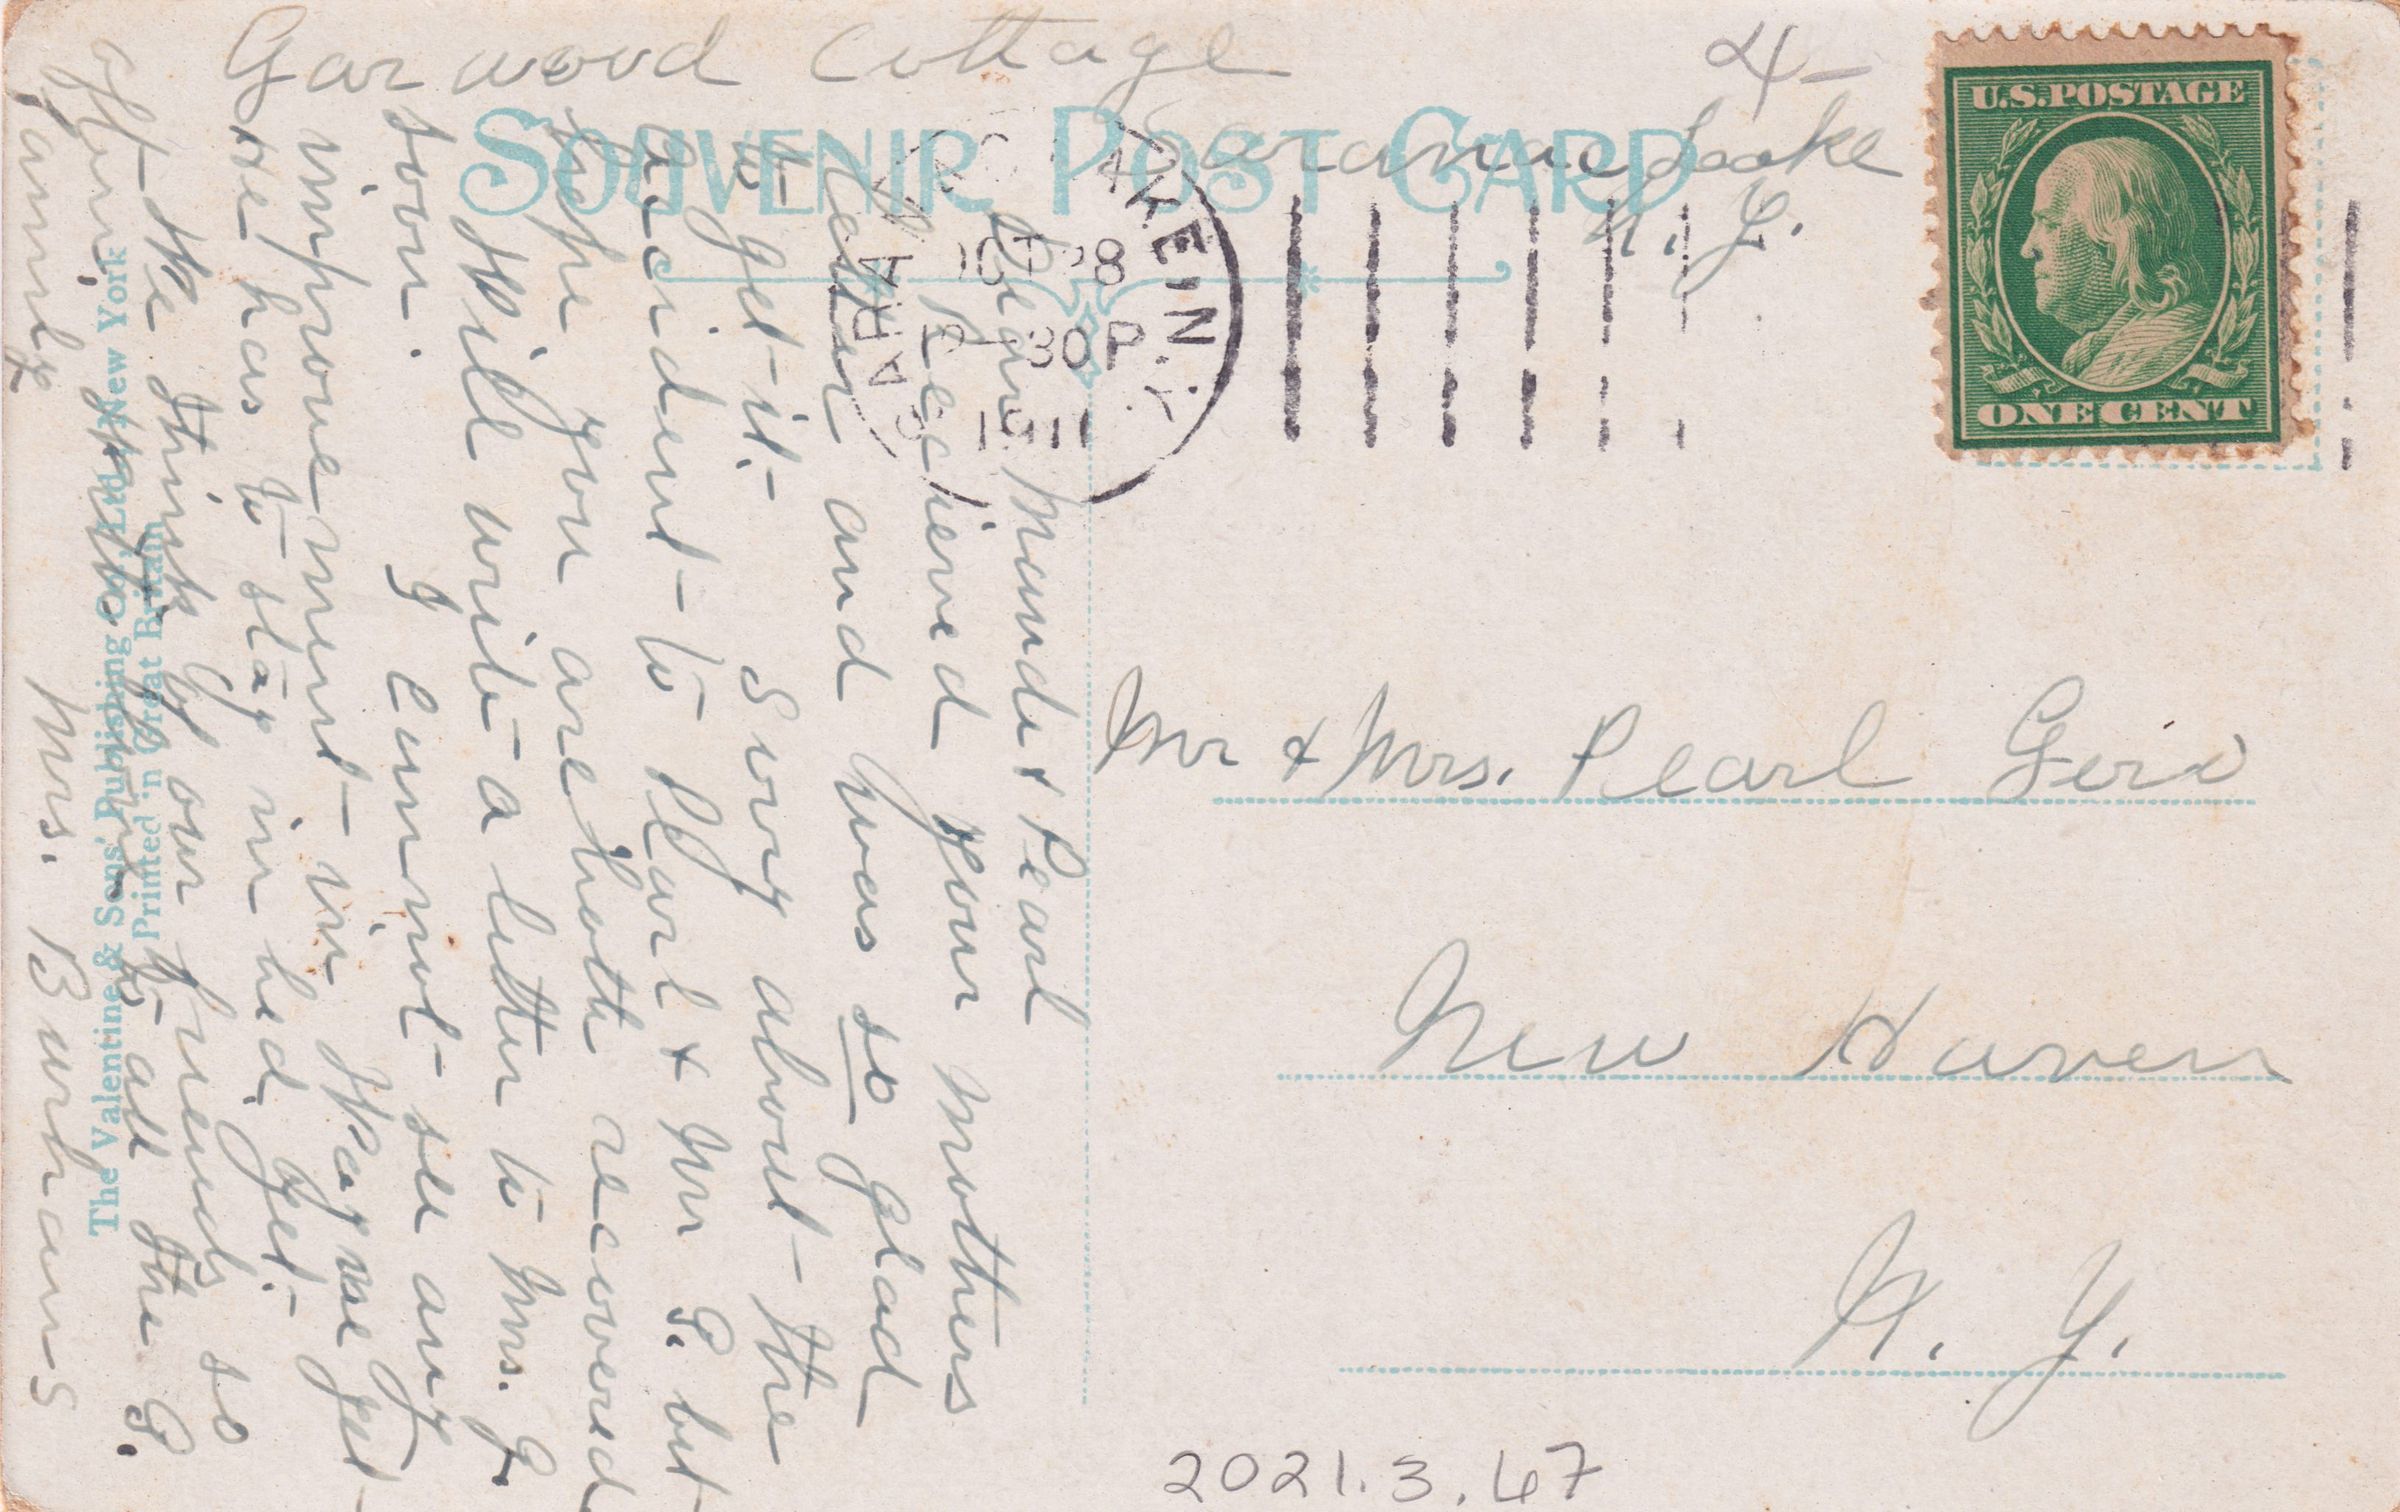 Garwood Cottage
Saranac Lake
N. Y.
4-
SOUVENIR POST CARD
SARANAC LAKE, N.Y.
OCT 28
-30P
1911
U.S.POSTAGE
ONE CENT
Dear Maude & Pearl
Recieved your mothers
letter and was so glad
to get it. Sorry about the
accident to Pearl & Mr G. but
hope you are both recovered
Will write a letter to Mrs. G.
soon. I cannot see any
improvement in Wayne yet
He has to stay in bed yet.
We think of our friends so
often. to all the G.
family Mrs. Burhans
The Valentine & Sons' Publishing Co., Ltd. New York
Printed in Great Britain
Mr & Mrs. Pearl Gero
New Haven
N. Y.
2021.3.67